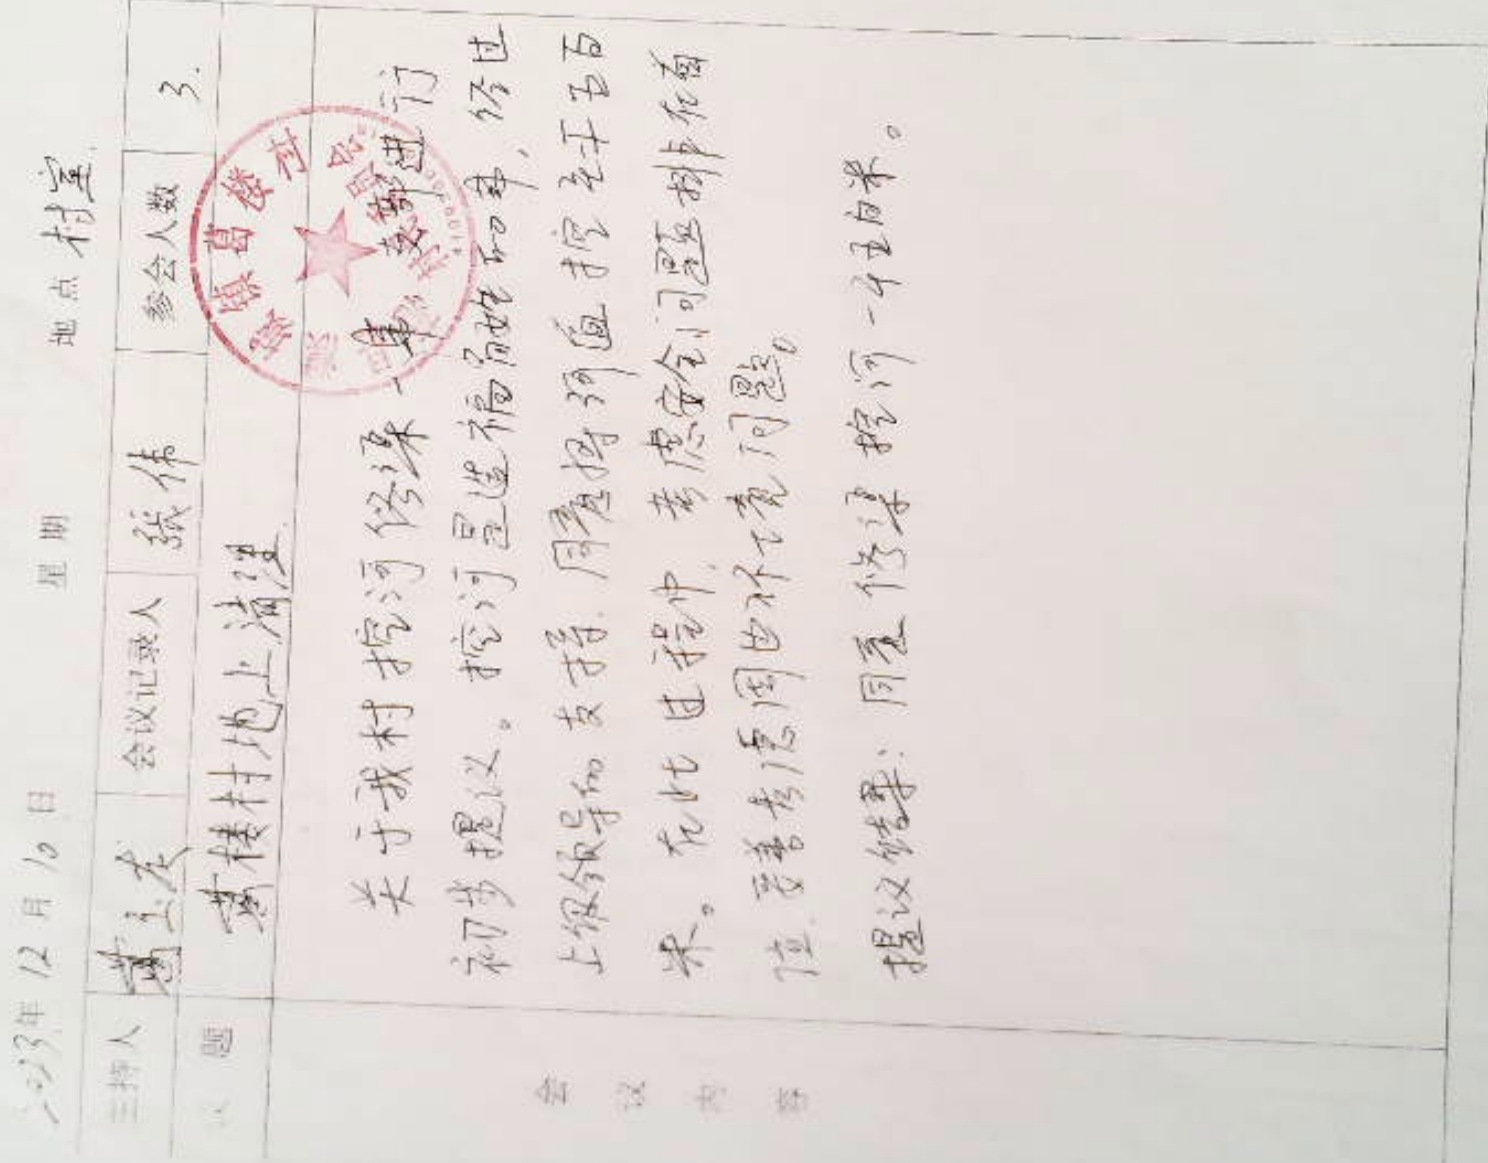 2023年12月10日 星期 地点 村室
主持人 葛玉龙 会议记录人 張伟 参会人数 3.
议题 葛楼村地上清理
会议内容
关于我村挖河修渠一事 支部进行
初步提议。挖河是造福百姓的事,经过
上级领导的支持,同意将河道挖至一千五百
米。在此过程中,考虑安全问题排在首
位,妥善考虑周边补偿问题。
提议结果:同意修渠挖河一千五百米。
城镇葛楼村